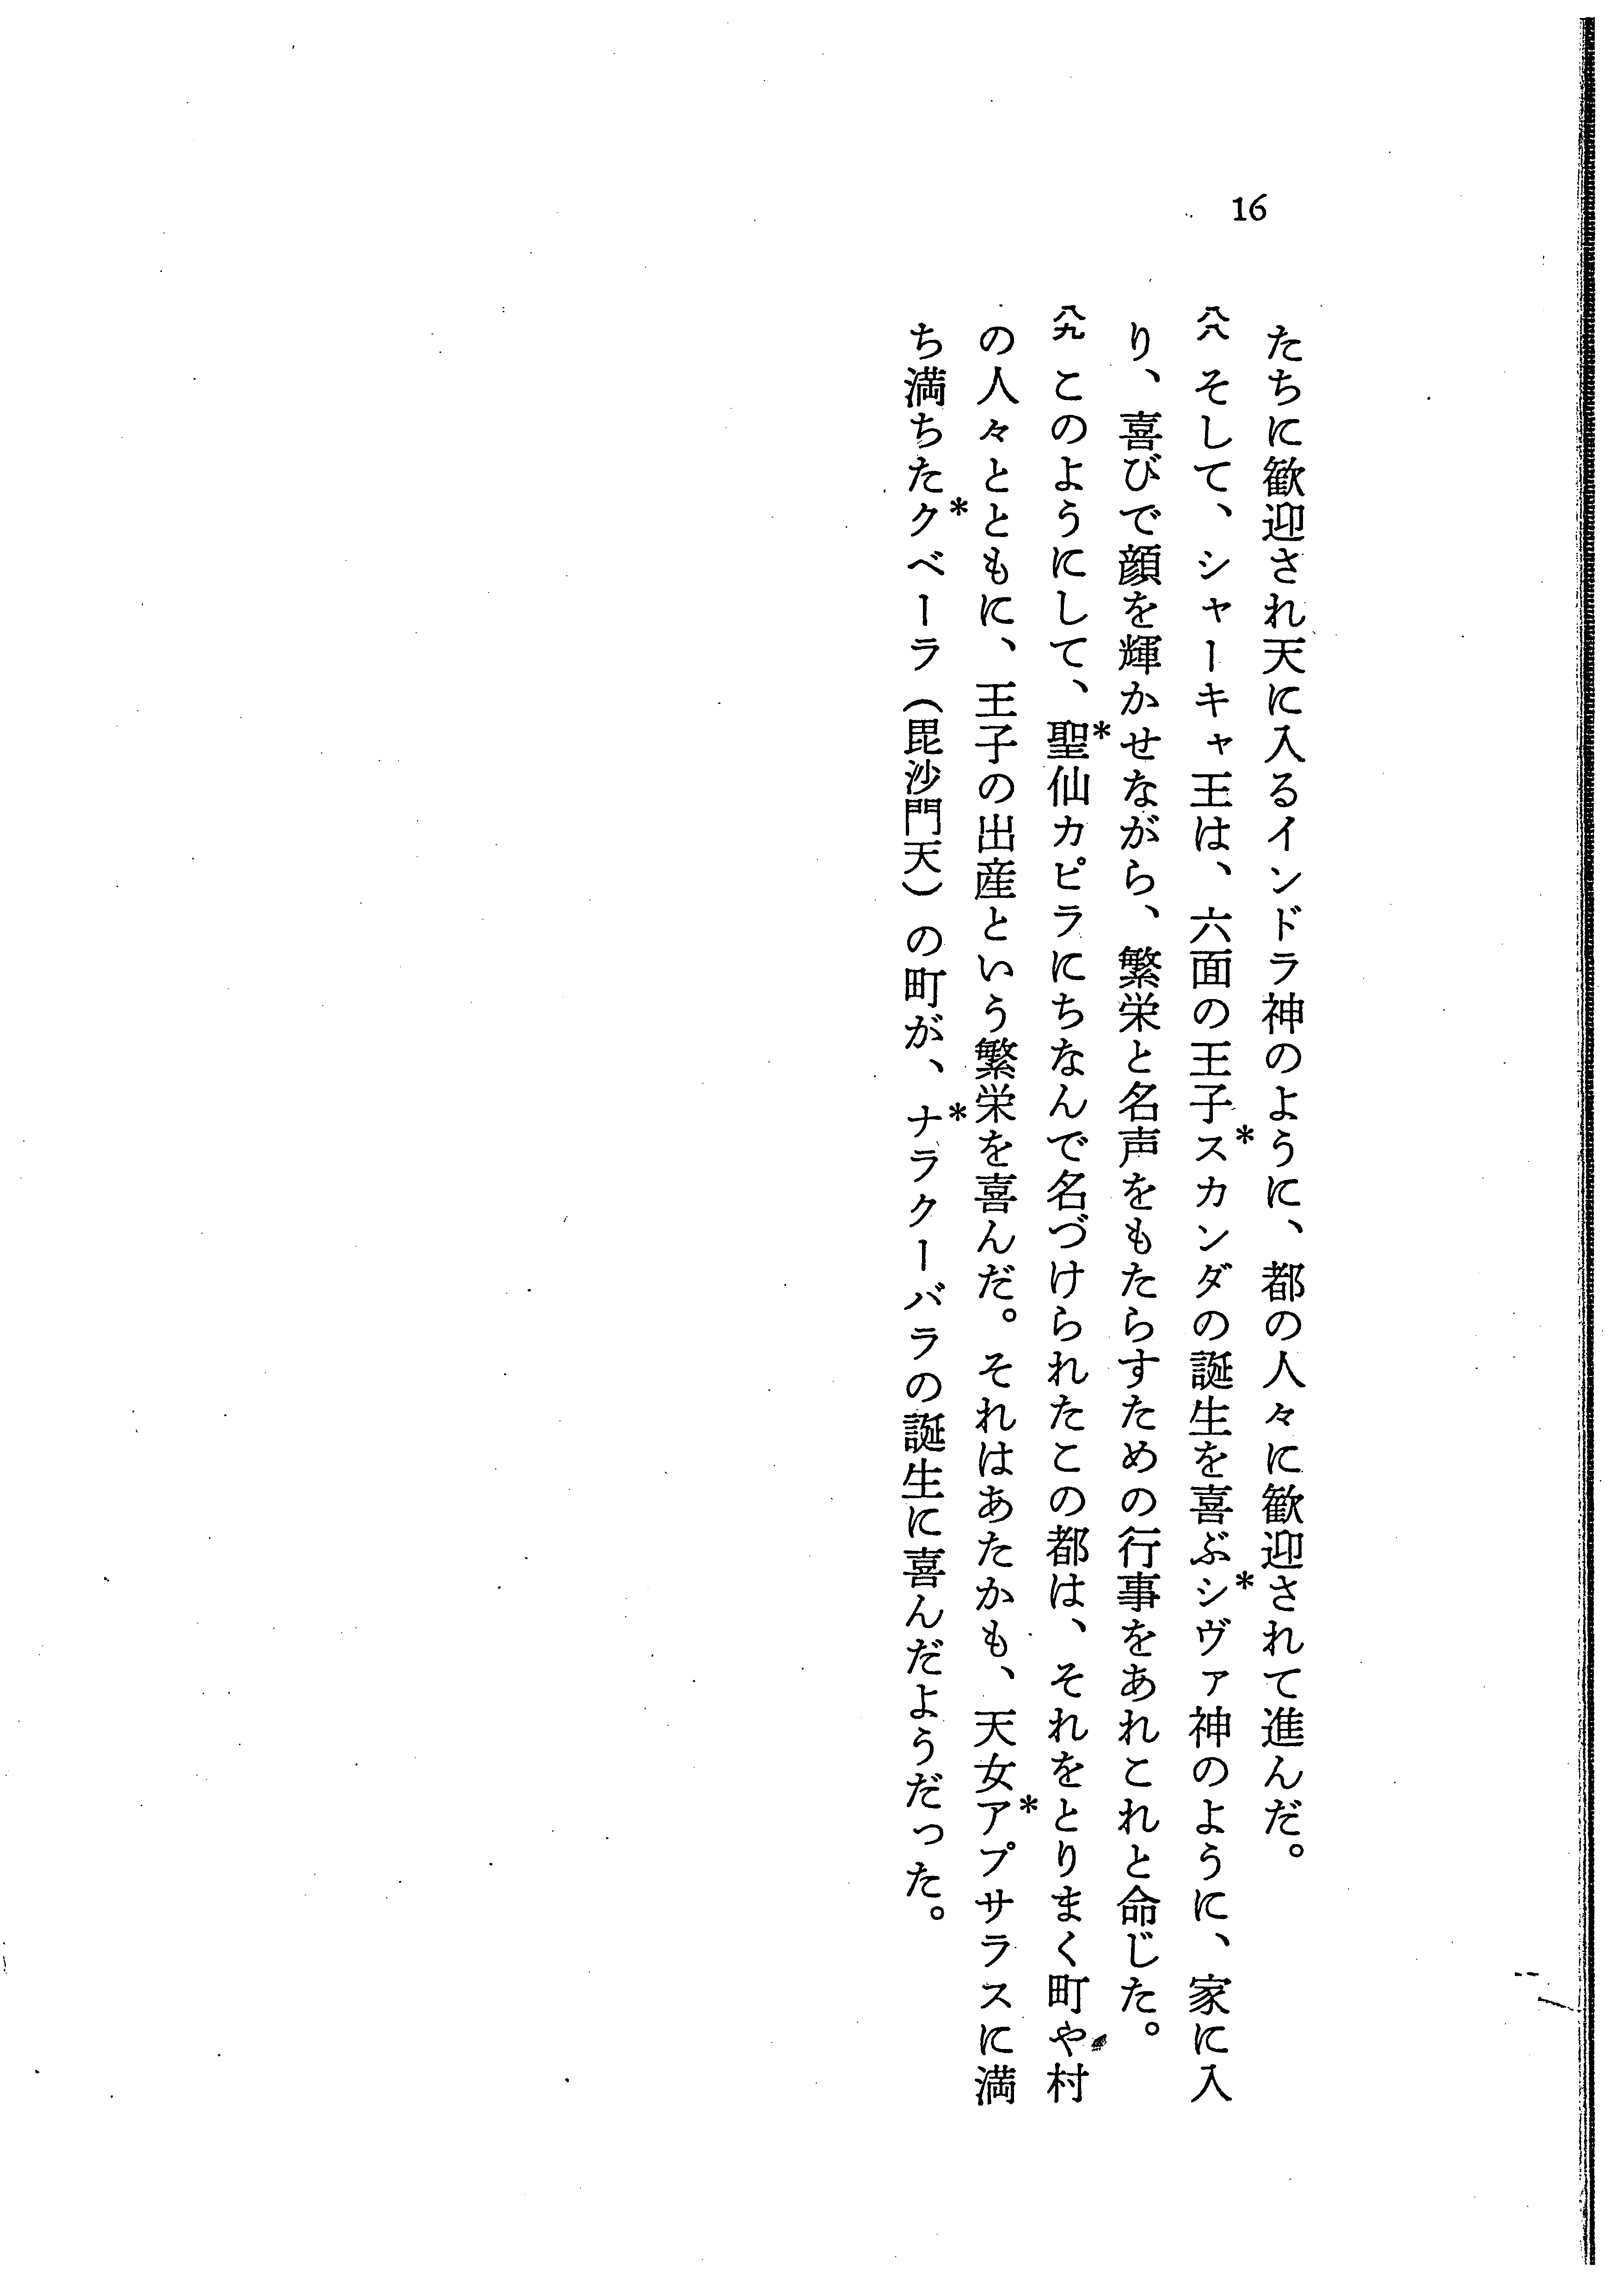 16
たちに歓迎され天に入るインドラ神のように、都の人々に歓迎されて進んだ。
八八 そして、シャーキャ王は、六面の王子*スカンダの誕生を喜ぶ*シヴァ神のように、家に入
り、喜びで顔を輝かせながら、繁栄と名声をもたらすための行事をあれこれと命じた。
八九 このようにして、*聖仙カピラにちなんで名づけられたこの都は、それをとりまく町や村
の人々とともに、王子の出産という繁栄を喜んだ。それはあたかも、天女*アプサラスに満
ち満ちた*クベーラ(毘沙門天)の町が、*ナラクーバラの誕生に喜んだようだった。